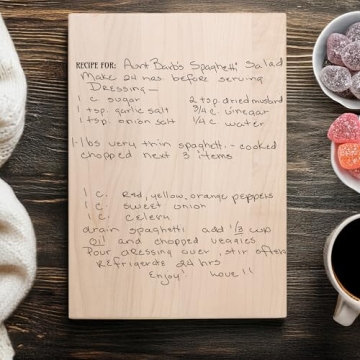 RECIPE FOR: Aunt Barb's Spaghetti Salad
Make 24 hrs. before serving
Dressing -
1 c. sugar 2 tsp. dried mustard
1 tsp. garlic salt 3/4 c. vinegar
1 tsp. onion salt 1/4 c. water
1-1 lbs very thin spaghetti - cooked
chopped next 3 items
1 c. red, yellow, orange peppers
1 c. sweet onion
1 c. celery
drain spaghetti add 1/3 cup
oil and chopped veggies
Pour dressing over, stir often
Refrigerate 24 hrs
Enjoy! Love!!